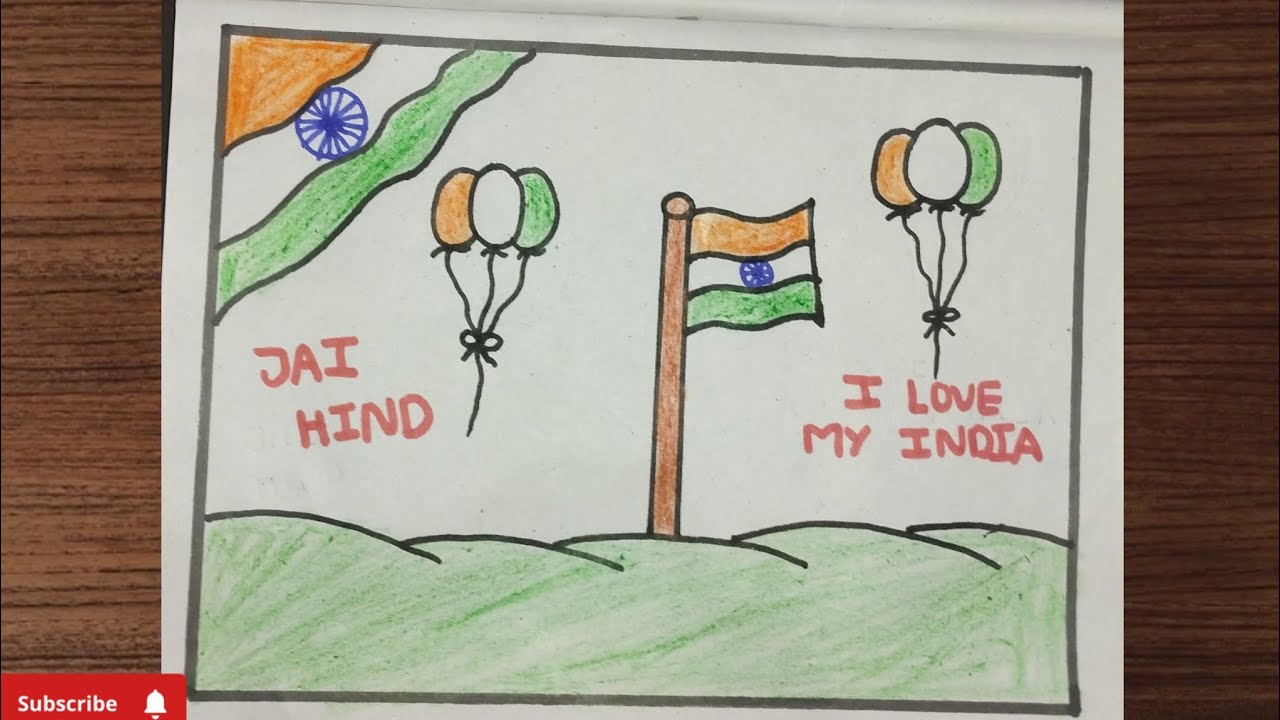 JAI
HIND
I LOVE
MY INDIA
Subscribe